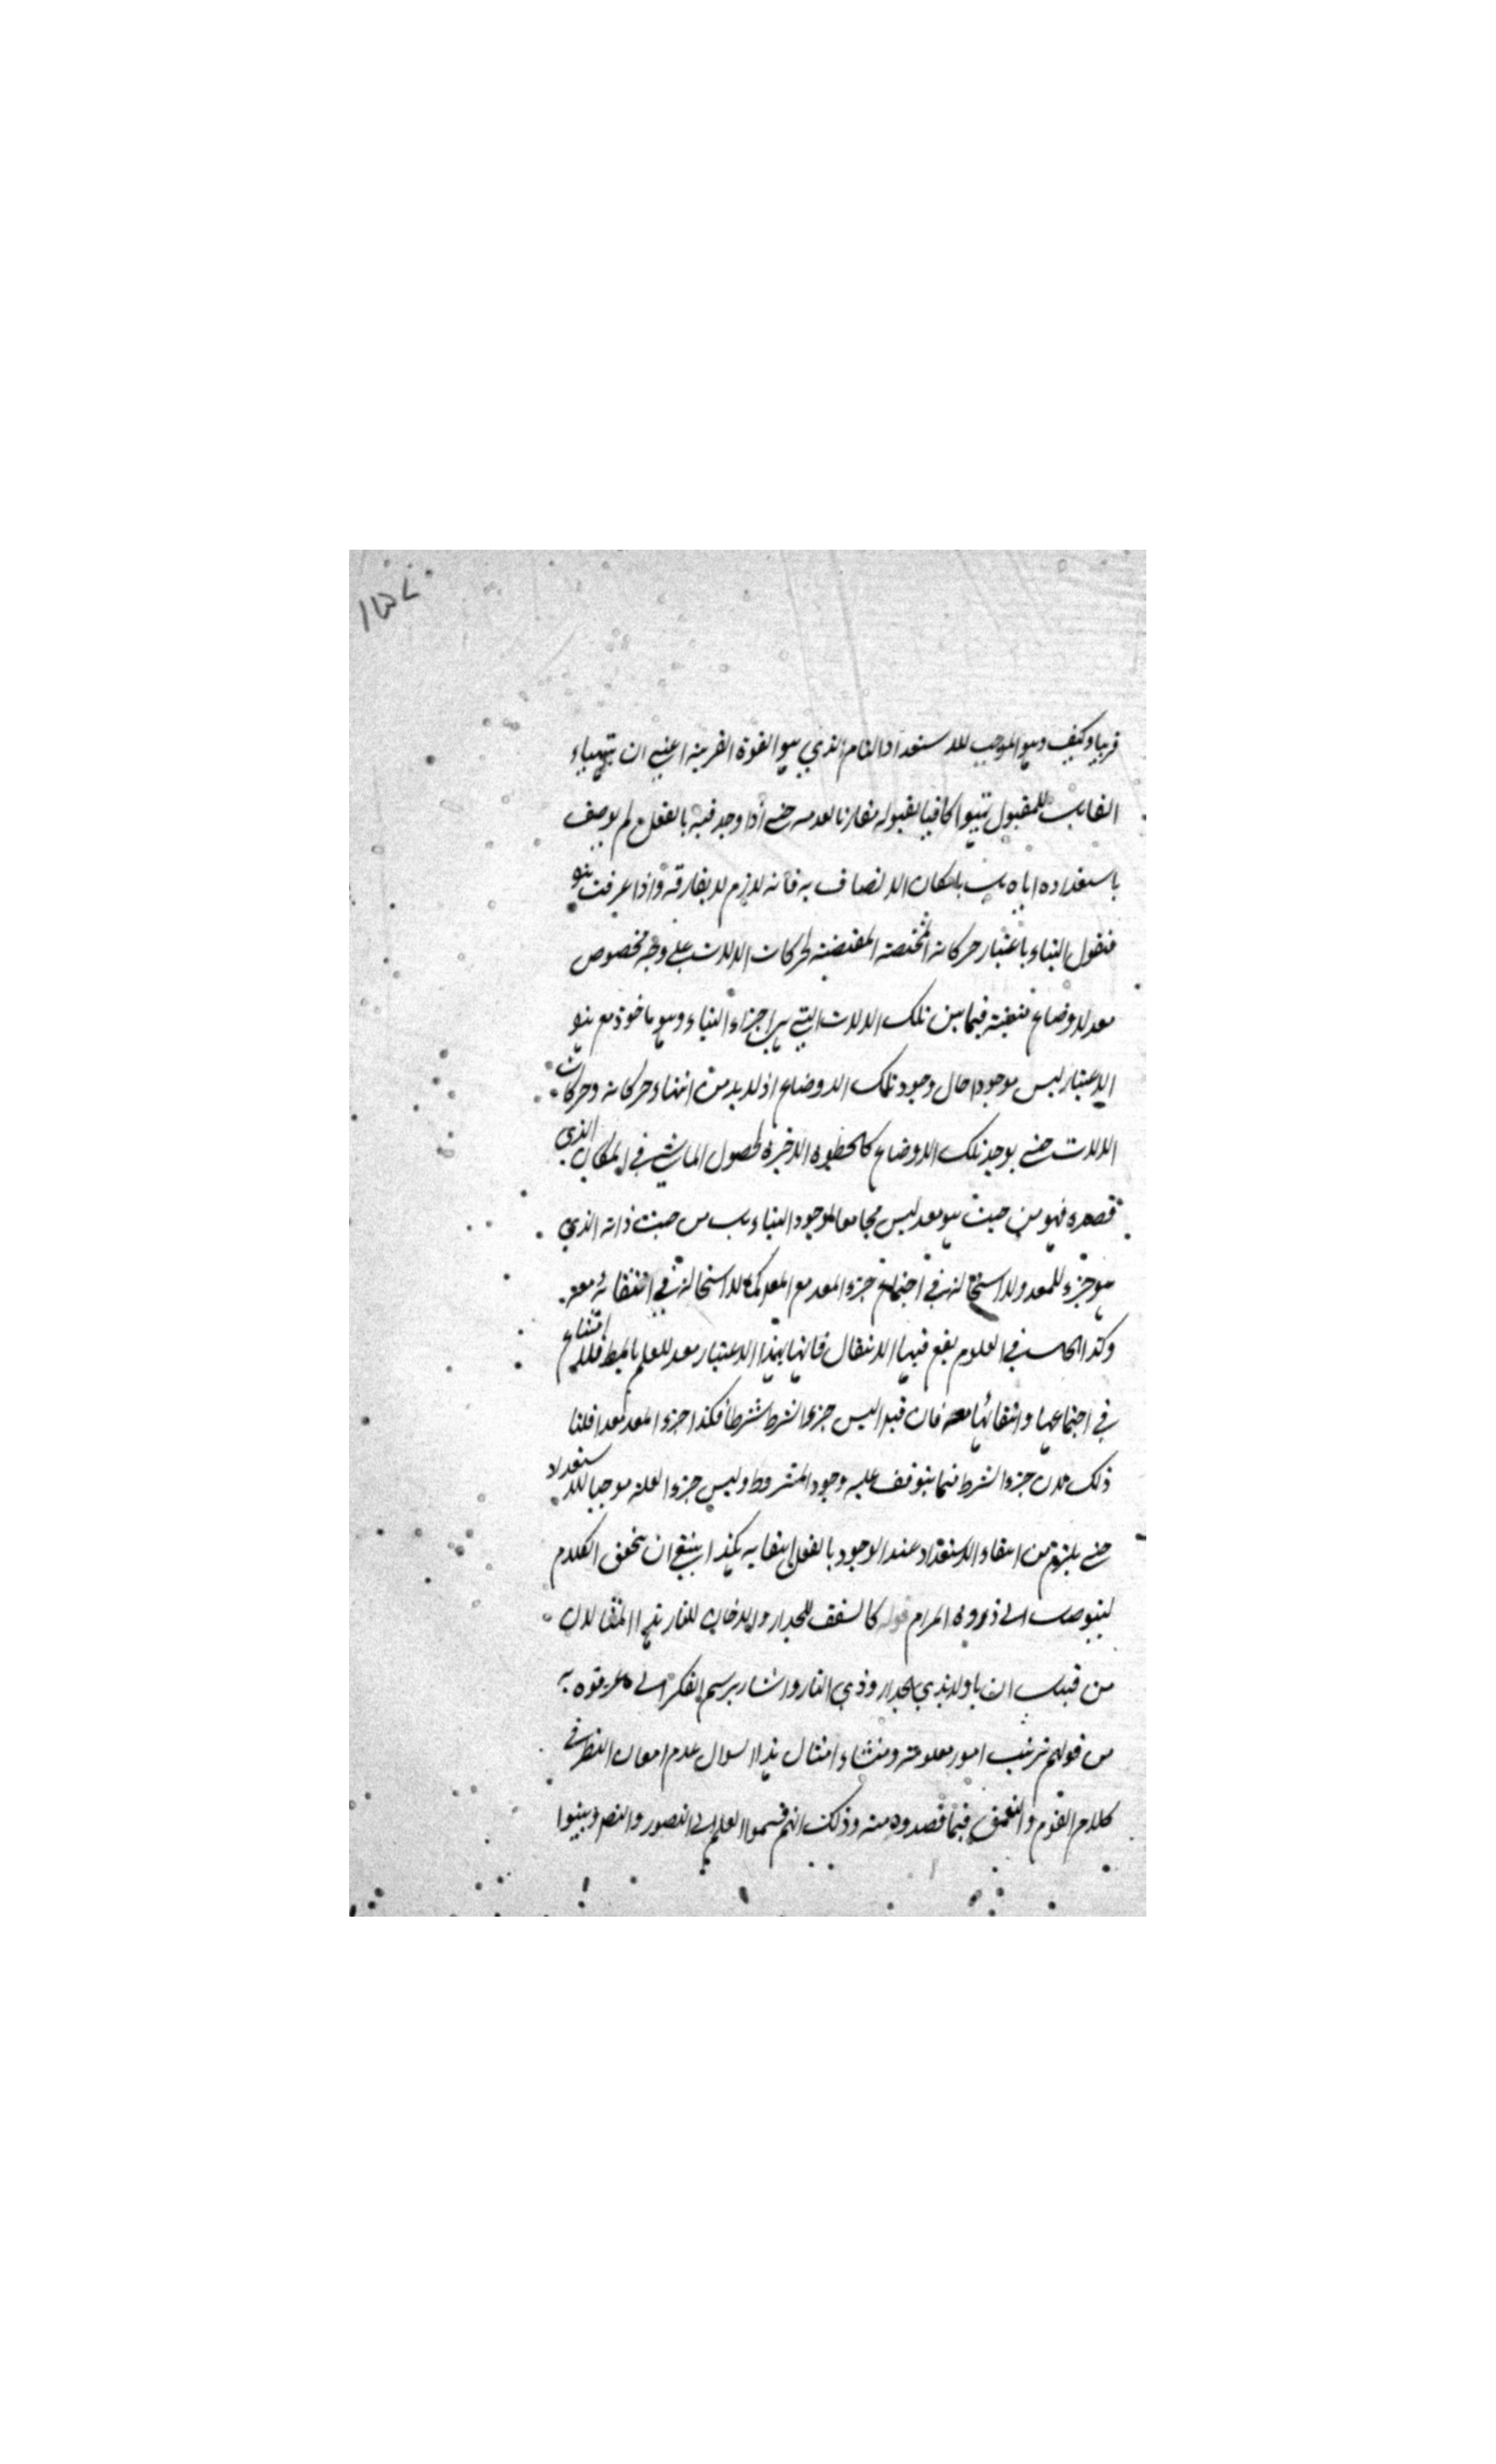 قريبا وكيف وهو الموجب للاستعداد التام الذي هو القوة القريبة اعني ان يتهيأ
القابل للمقبول تهيؤا كافيا لقبوله مقارنا لعدمه حتى اذا وجد فيه بالفعل لم يوصف
باستعداده اياه بل بامكان الاتصاف به فانه لازم لا يفارقه واذا عرفت هذا
فنقول البناء باعتبار حركاته المختصة المقتضية لحركات الالات على وجه مخصوص
معد لاوضاع فيما بين تلك الالات التي هي اجزاء البناء وهو ماخوذ مع هذا
الاعتبار ليس موجودا حال وجود تلك الاوضاع اذ لا بد من انتهاء حركاته وحركات
الالات حتى يوجد تلك الاوضاع كالخطوة الاخيرة لحصول الماشي في المكان الذي
قصده فهو من حيث هو معد ليس مجامعا لوجود البناء بل من حيث ذاته الذي
هو جزء للمعد ولا استحالة في اجتماع جزء المعد مع المعد كما لا استحالة في انتفائه معه
وكذا الحال في العلوم يقع فيها الانتقال فانها بهذا الاعتبار معد للعلم بالمط فلا امتناع
في اجتماعها وانتفائها معه فان قيل اليس جزء الشرط شرطا فكذا جزء المعد معد قلنا
ذلك لان جزء الشرط مما يتوقف عليه وجود المشروط وليس جزء العلة موجبا للاستعداد
حتى يلزم من انتفاء الاستعداد عند الوجود بالفعل انتفائه هكذا ينبغي ان يحقق الكلام
ليتوصل الى ذروة المرام قوله كالسقف للجدار والدخان للنار هذا المثالان
من قبيل ان ياول بذي الجدار وذي النار واشار برسم الفكر الى ما عرفوه به
من قولهم ترتيب امور معلومة ومنشاء امثال هذا السوال عدم امعان النظر في
كلام القوم والتعمق فيما قصدوه منه وذلك انهم قسموا العلم الى التصور والتصديق وبينوا